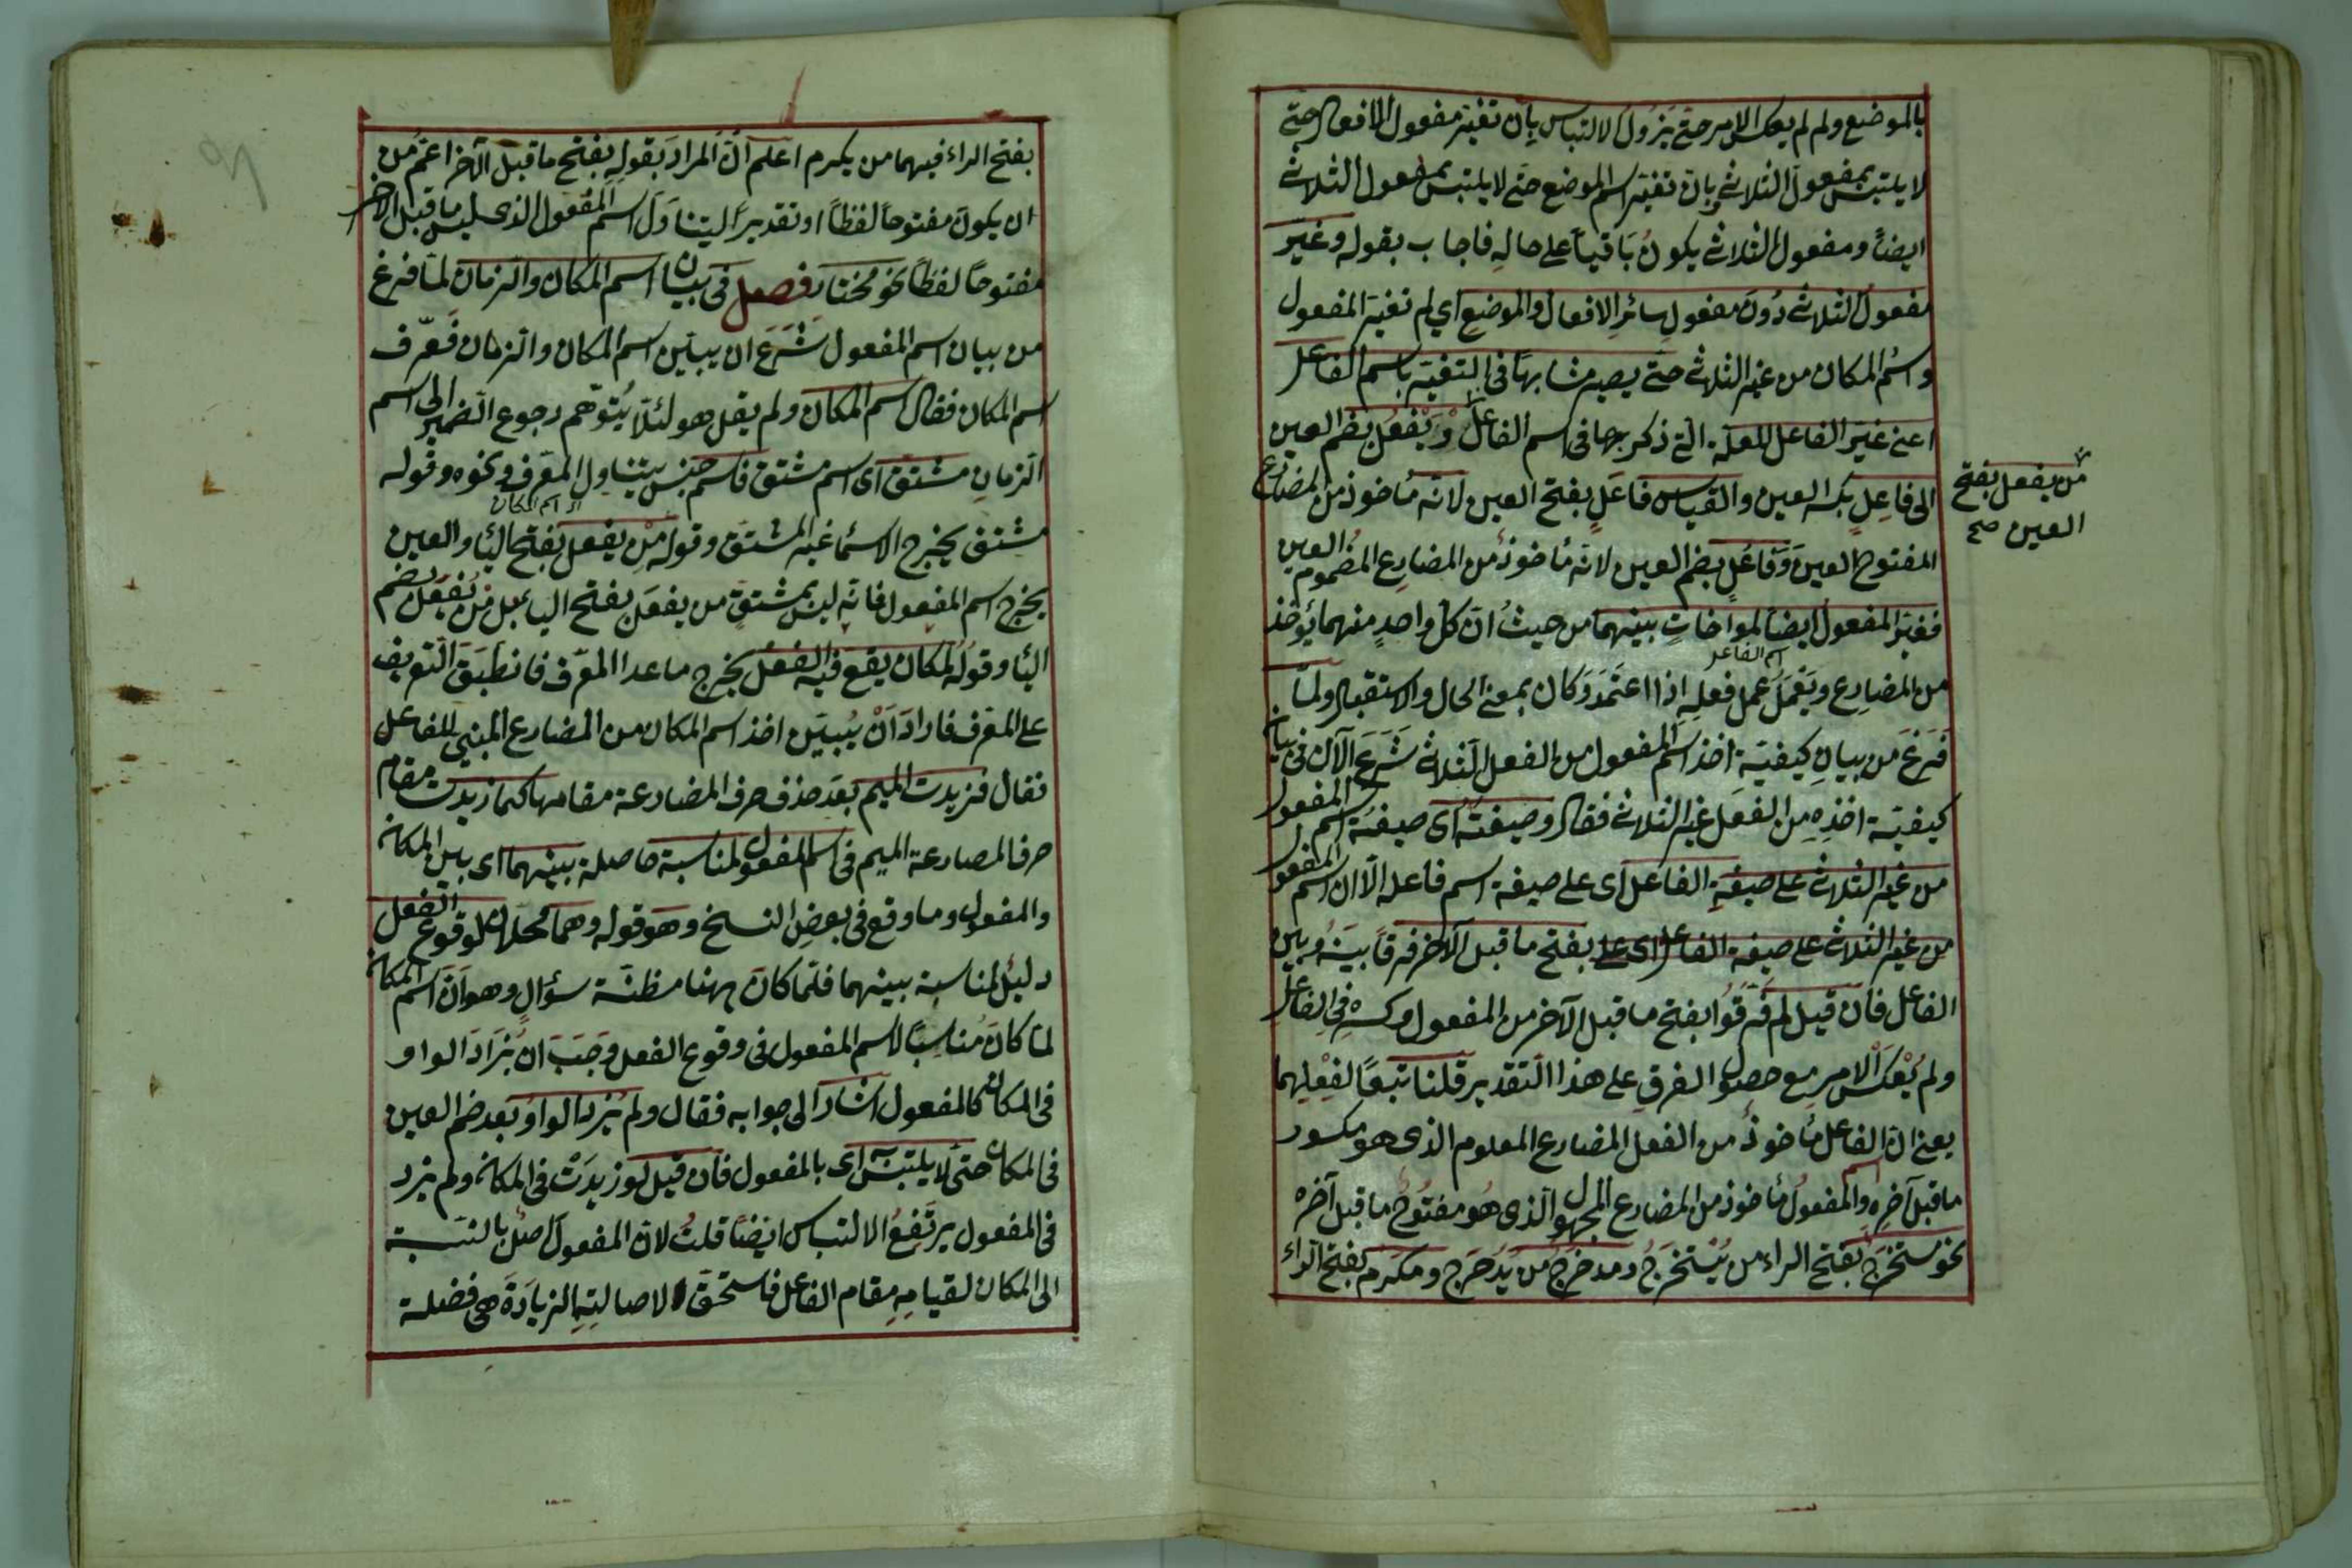 بالموضع ولم لم يعكس الامر حتى يزول الالتباس بان تغير مفعول الافعال حتى
لا يلتبس بمفعول الثلاثى وبان تغير اسم الموضع حتى لا يلتبس بمفعول الثلاثى
ايضاً ومفعول الثلاثى يكون باقياً على حاله فاجاب بقوله وغير
مفعول الثلاثى دون مفعول سائر الافعال والموضع اي لم تغير المفعول
واسم المكان من غير الثلاثى حتى يصير مشابهاً فى التغير باسم الفاعل
اعنى غير الفاعل للعلة التى ذكرها فى اسم الفاعل ويفعل بضم العين
من يفعل بفتح
العين صح
الى فاعل بكسر العين والقياس فاعل بفتح العين لانه مأخوذ من المضارع
المفتوح العين وفاعل بضم العين لانه مأخوذ من المضارع المضموم العين
فغير المفعول ايضاً لمواخات بينهما من حيث ان كل واحد منهما يؤخذ
اسم الفاعل
من المضارع ويعمل عمل فعله اذا اعتمد وكان بمعنى الحال والاستقبال ولما
فرغ من بيان كيفية اخذ اسم المفعول من الفعل الثلاثى شرع الآن فى بيان
كيفية اخذه من الفعل غير الثلاثى فقال وصيغته اى صيغة اسم المفعول
من غير الثلاثى على صيغة الفاعل اى على صيغة اسم فاعله الا ان اسم المفعول
من غير الثلاثى على صيغة الفاعل اى على بفتح ما قبل الآخر فرقاً بينه وبين
الفاعل فان قيل لم فرقوا بفتح ما قبل الآخر من المفعول وكسره فى الفاعل
ولم يعكس الامر مع حصول الفرق على هذا التقدير قلنا تبعاً لفعلهما
يعنى ان الفاعل مأخوذ من الفعل المضارع المعلوم الذى هو مكسور
ما قبل آخره واسم المفعول مأخوذ من المضارع المجهول الذى هو مفتوح ما قبل آخره
نحو مستخرج بفتح الراء من يستخرج ومدحرج من يدحرج ومكرم بفتح الراء
بفتح الراء فيهما من يكرم اعلم ان المراد بقوله بفتح ما قبل الآخر اعم من
ان يكون مفتوحاً لفظاً او تقديراً ليتناول اسم المفعول الذى ليس ما قبل الآخر
مفتوحاً لفظاً نحو مختار فصل فى بيان اسم المكان والزمان لما فرغ
من بيان اسم المفعول شرع ان يبين اسم المكان والزمان فعرف
اسم المكان فقال اسم المكان ولم يقل هو لئلا يتوهم رجوع الضمير الى اسم
الزمان مشتق اى اسم مشتق فاسم جنس يتناول المعرف ونحوه وقوله
اى اسم المكان
مشتق يخرج الاسماء غير المشتق وقوله من يفعل بفتح الياء والعين
يخرج اسم المفعول فانه ليس بمشتق من يفعل بفتح الياء بل من يفعل بضم
الياء وقوله لمكان يقع فيه الفعل يخرج ما عدا المعرف فانطبق التعريف
على المعرف فاراد ان يبين اخذ اسم المكان من المضارع المبنى للفاعل
فقال فزيدت الميم بعد حذف حرف المضارعة مقامها كما زيدت مقام
حرف المضارعة الميم فى اسم المفعول لمناسبة حاصلة بينهما اى بين المكان
والمفعول وما وقع فى بعض النسخ وهو قوله وهما محلان لوقوع الفعل
دليل لمناسبة بينهما فلما كان ههنا مظنة سؤال وهو ان اسم المكان
لما كان مناسباً لاسم المفعول فى وقوع الفعل وجب ان يزاد الواو
فى المكان كالمفعول اشار الى جوابه فقال ولم يزد الواو بعد ضم العين
فى المكان حتى لا يلتبس اى بالمفعول فان قيل لو زيدت فى المكان ولم يزد
فى المفعول يرتفع الالتباس ايضاً قلت لان المفعول اصل بالنسبة
الى المكان لقيامه مقام الفاعل فاستحق لاصالته الزيادة هى فضلة